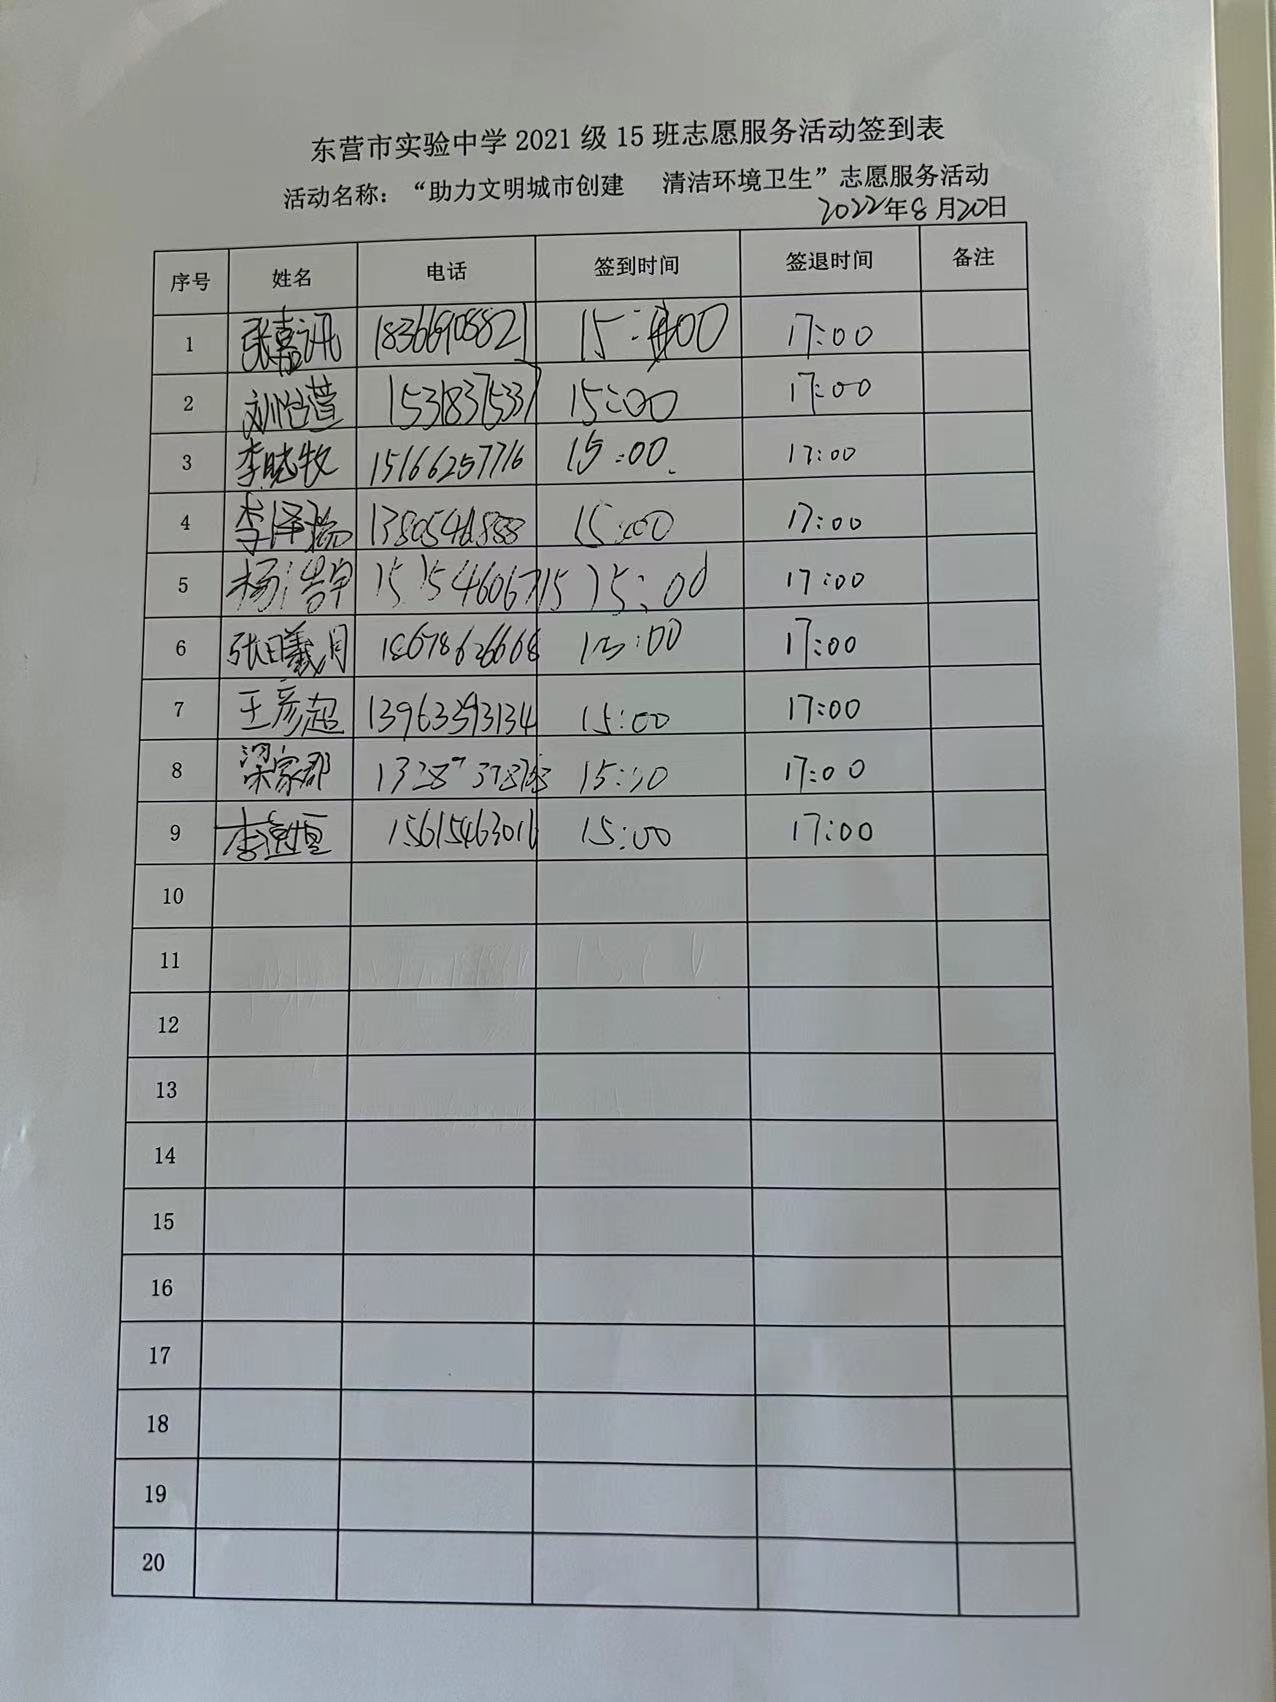 东营市实验中学 2021 级 15 班志愿服务活动签到表
活动名称：“助力文明城市创建 清洁环境卫生”志愿服务活动
2022年8月20日
序号 姓名 电话 签到时间 签退时间 备注
1 张嘉讯 18366908821 15:00 17:00
2 刘怡萱 15318375337 15:00 17:00
3 李晓牧 15166257716 15:00 17:00
4 李泽 15:00 17:00
5 杨浩宇 15154606715 15:00 17:00
6 张曦月 18678626668 17:00
7 王彦超 13963393134 15:00 17:00
8 梁家郡 15:00 17:00
9 李 15615463016 15:00 17:00
10
11
12
13
14
15
16
17
18
19
20